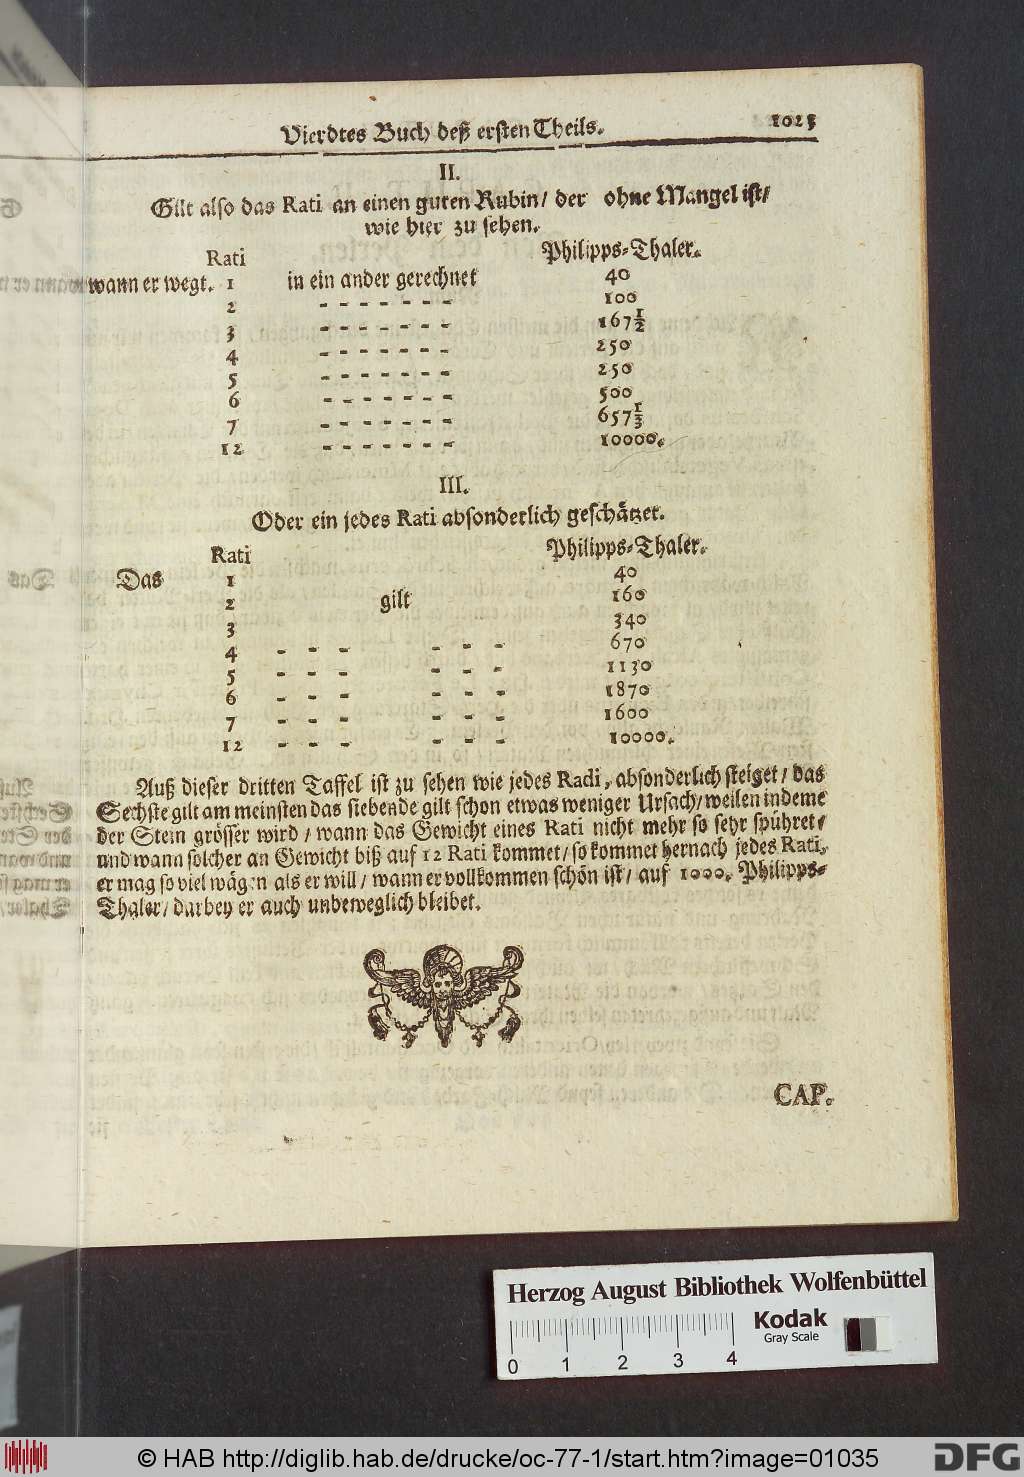 Vierdtes Buch deß ersten Theils. 1025
II.
Gilt also das Rati an einen guten Rubin/ der ohne Mangel ist/
wie hier zu sehen.
Rati Philipps-Thaler.
wann er wegt. 1 in ein ander gerechnet 40
2 - - - - - - - 100
3 - - - - - - - 167 1/2
4 - - - - - - - 250
5 - - - - - - - 250
6 - - - - - - - 500
7 - - - - - - - 657 1/3
12 - - - - - - - 10000.
III.
Oder ein jedes Rati absonderlich geschåtzet.
Rati Philipps-Thaler.
Das 1 40
2 gilt 160
3 340
4 - - - - - - 670
5 - - - - - - 1130
6 - - - - - - 1870
7 - - - - - - 1600
12 - - - - - - 10000.
Auß dieser dritten Taffel ist zu sehen wie jedes Radi, absonderlich steiget/ das
Sechste gilt am meinsten das siebende gilt schon etwas weniger Ursach/ weilen indeme
der Stein grösser wird/ wann das Gewicht eines Rati nicht mehr so sehr spühret/
und wann solcher an Gewicht biß auf 12 Rati kommet/ so kommet hernach jedes Rati,
er mag so viel wägen als er will/ wann er vollkommen schön ist/ auf 1000. Philipps-
Thaler/ darbey er auch unbeweglich bleibet.
CAP.
Herzog August Bibliothek Wolfenbüttel
Kodak
Gray Scale
0 1 2 3 4
© HAB http://diglib.hab.de/drucke/oc-77-1/start.htm?image=01035
DFG